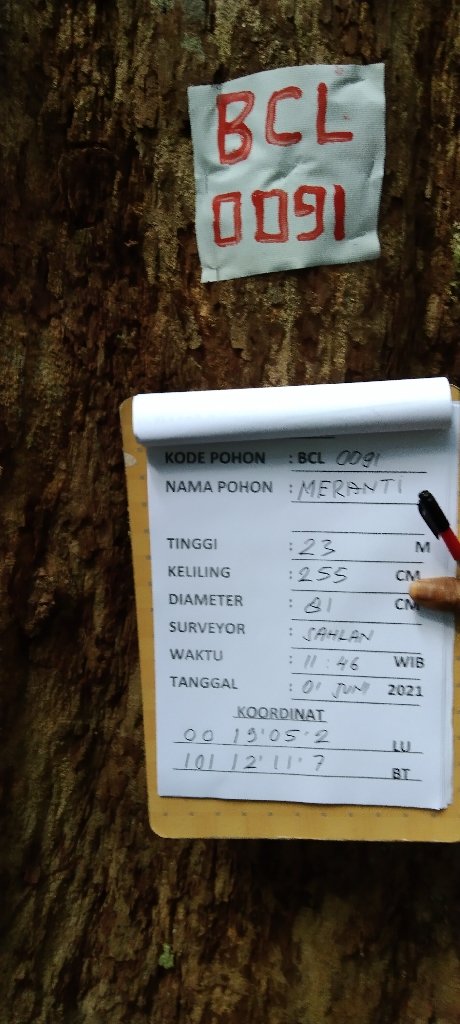 BCL
0091
KODE POHON : BCL 0091
NAMA POHON : MERANTI
TINGGI : 23 M
KELILING : 255 CM
DIAMETER : 81 CM
SURVEYOR : SAHLAN
WAKTU : 11:46 WIB
TANGGAL : 01 JUNI 2021
KOORDINAT
00 19'05'2 LU
101 12'11'7 BT